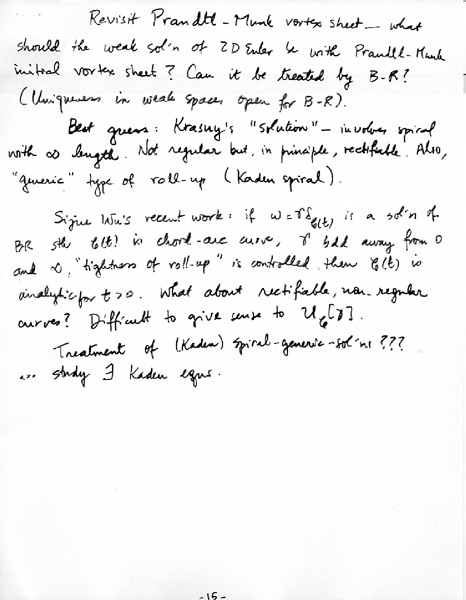 Revisit Prandtl-Munk vortex sheet — what
should the weak sol'n of 2D Euler be with Prandtl-Munk
initial vortex sheet? Can it be treated by B-R?
(Uniqueness in weak spaces open for B-R).
Best guess: Krasny's "solution" — involves spiral
with ∞ length. Not regular but, in principle, rectifiable. Also,
"generic" type of roll-up (Kaden spiral).
Sijue Wu's recent work: if ω = γδ_{C(t)} is a sol'n of
BR sth C(t) is chord-arc curve, γ bdd away from 0
and ∞, "tightness of roll-up" is controlled then C(t) is
analytic for t>0. What about rectifiable, non-regular
curves? Difficult to give sense to U_C[γ].
Treatment of (Kaden) spiral-generic-sol'ns???
... study ∃ Kaden eqns.
-15-